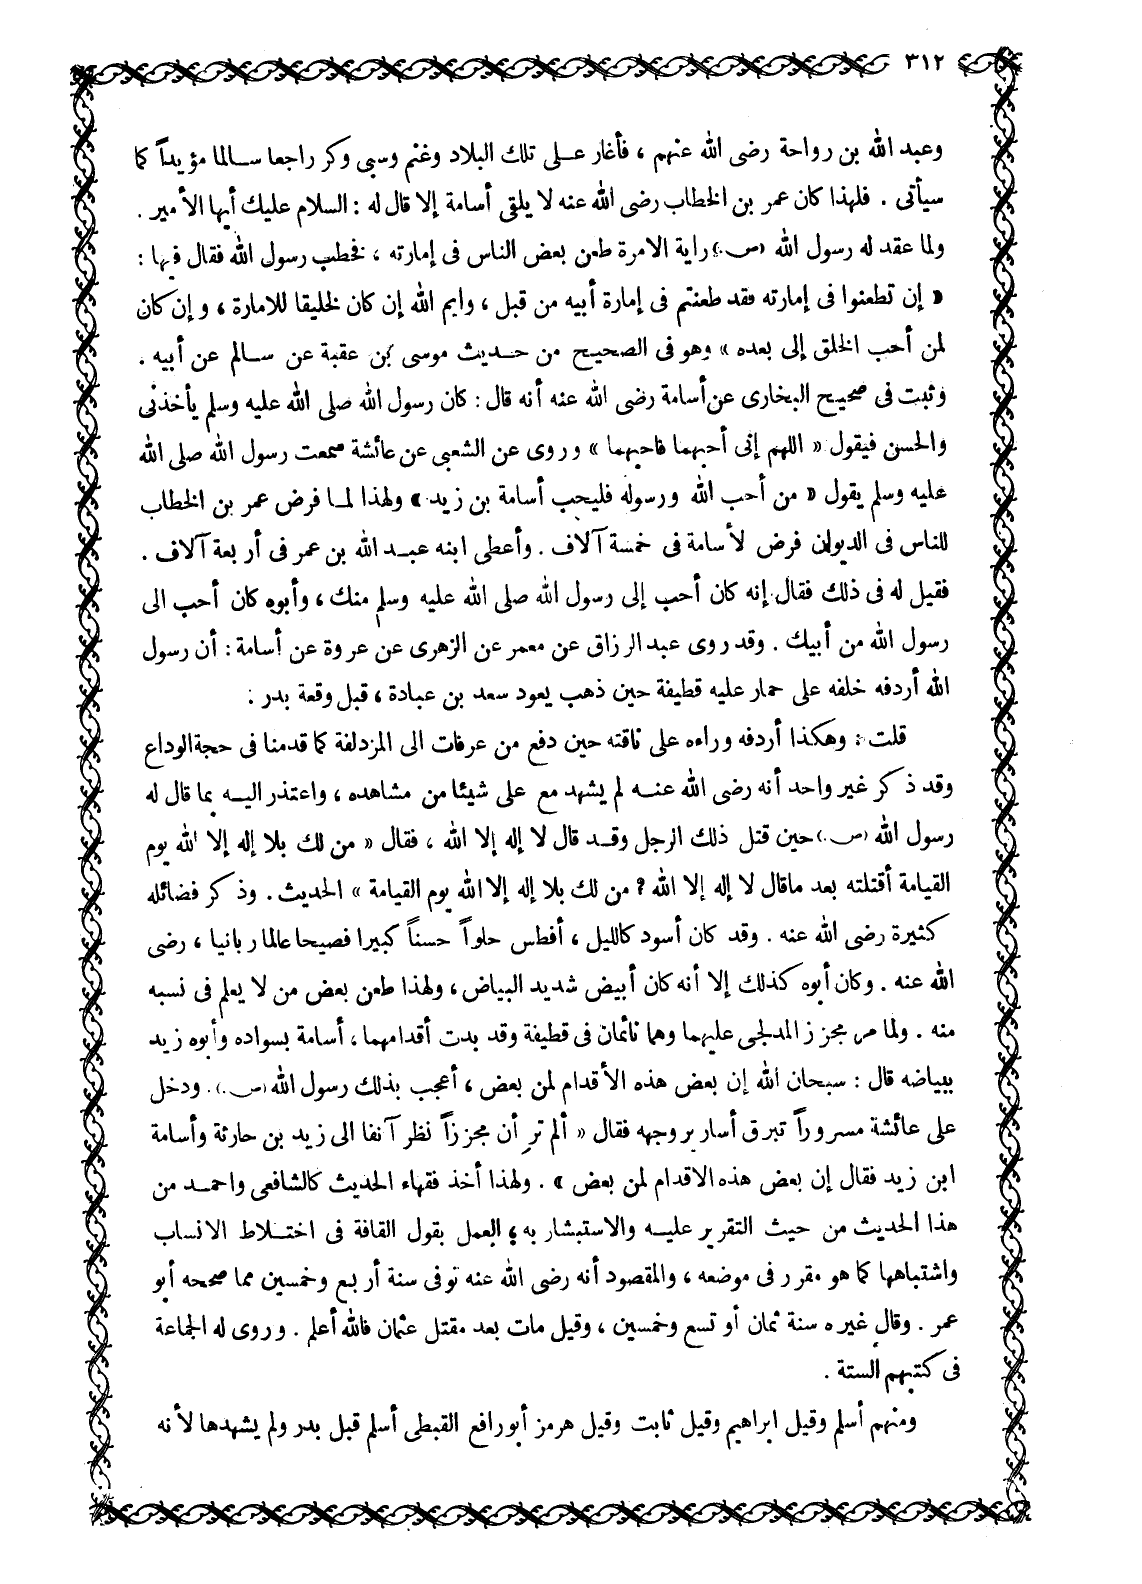 ٣١٢
وعبد الله بن رواحة رضى الله عنهم ، فأغار على تلك البلاد وغنم وسبى وكر راجعا سالما مؤيداً كما
سيأتى . فلهذا كان عمر بن الخطاب رضى الله عنه لا يلقى أسامة إلا قال له : السلام عليك أيها الأمير .
ولما عقد له رسول الله (ص.) راية الامرة طعن بعض الناس فى إمارته ، فخطب رسول الله فقال فيها :
« إن تطعنوا فى إمارته فقد طعنتم فى إمارة أبيه من قبل ، وايم الله إن كان لخليقا للامارة ، وإن كان
لمن أحب الخلق إلى بعده » وهو فى الصحيح من حديث موسى بن عقبة عن سالم عن أبيه .
وثبت فى صحيح البخارى عن أسامة رضى الله عنه أنه قال : كان رسول الله صلى الله عليه وسلم يأخذنى
والحسن فيقول « اللهم إنى أحبهما فاحبهما » وروى عن الشعبى عن عائشة سمعت رسول الله صلى الله
عليه وسلم يقول « من أحب الله ورسوله فليحب أسامة بن زيد » ولهذا لما فرض عمر بن الخطاب
للناس فى الديوان فرض لأسامة فى خمسة آلاف . وأعطى ابنه عبد الله بن عمر فى أربعة آلاف .
فقيل له فى ذلك فقال إنه كان أحب إلى رسول الله صلى الله عليه وسلم منك ، وأبوه كان أحب الى
رسول الله من أبيك . وقد روى عبد الرزاق عن معمر عن الزهرى عن عروة عن أسامة : أن رسول
الله أردفه خلفه على حمار عليه قطيفة حين ذهب يعود سعد بن عبادة ، قبل وقعة بدر :
قلت : وهكذا أردفه وراءه على ناقته حين دفع من عرفات الى المزدلفة كما قدمنا فى حجة الوداع
وقد ذكر غير واحد أنه رضى الله عنه لم يشهد مع على شيئا من مشاهده ، واعتذر اليه بما قال له
رسول الله (ص.) حين قتل ذلك الرجل وقد قال لا إله إلا الله ، فقال « من لك بلا إله إلا الله يوم
القيامة أقتلته بعد ماقال لا إله إلا الله ? من لك بلا إله إلا الله يوم القيامة » الحديث . وذكر فضائله
كثيرة رضى الله عنه . وقد كان أسود كالليل ، أفطس حلواً حسناً كبيرا فصيحا عالما ربانيا ، رضى
الله عنه . وكان أبوه كذلك إلا أنه كان أبيض شديد البياض ، ولهذا طعن بعض من لا يعلم فى نسبه
منه . ولما مر مجزز المدلجى عليهما وهما نائمان فى قطيفة وقد بدت أقدامهما ، أسامة بسواده وأبوه زيد
ببياضه قال : سبحان الله إن بعض هذه الأقدام لمن بعض ، أعجب بذلك رسول الله (ص.) . ودخل
على عائشة مسروراً تبرق أسارير وجهه فقال « ألم تر أن مجززاً نظر آنفا الى زيد بن حارثة وأسامة
ابن زيد فقال إن بعض هذه الاقدام لمن بعض » . ولهذا أخذ فقهاء الحديث كالشافعى واحمد من
هذا الحديث من حيث التقرير عليه والاستبشار به ، العمل بقول القافة فى اختلاط الانساب
واشتباهها كما هو مقرر فى موضعه ، والمقصود أنه رضى الله عنه توفى سنة أربع وخمسين مما صححه أبو
عمر . وقال غيره سنة ثمان أو تسع وخمسين ، وقيل مات بعد مقتل عثمان فالله أعلم . وروى له الجماعة
فى كتبهم الستة .
ومنهم أسلم وقيل ابراهيم وقيل ثابت وقيل هرمز أبو رافع القبطى أسلم قبل بدر ولم يشهدها لأنه